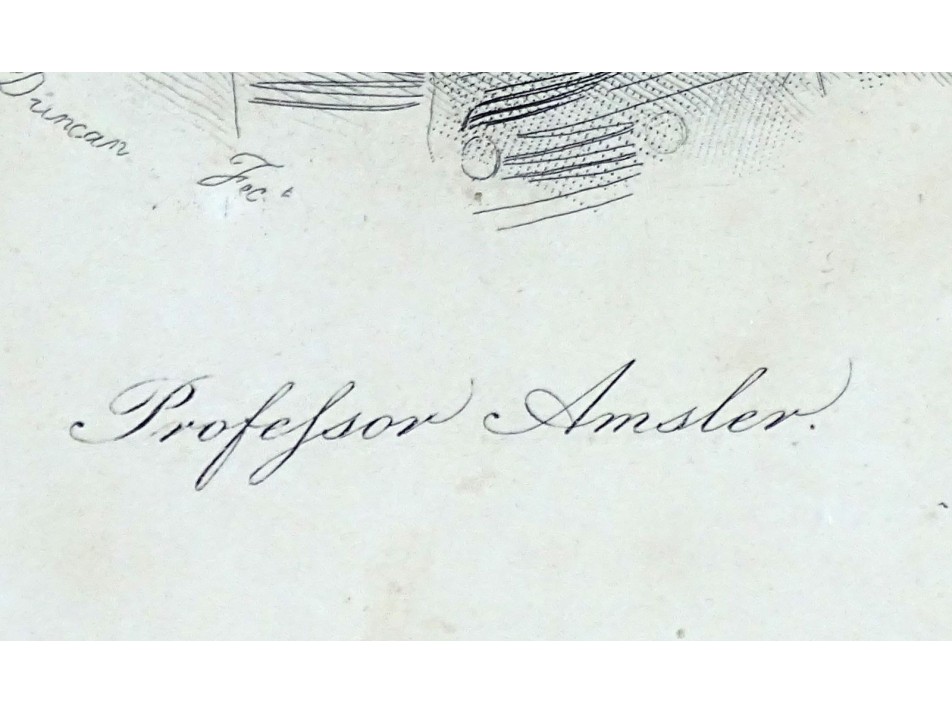 Duncan
Fec.t
Profeſsor Amsler.